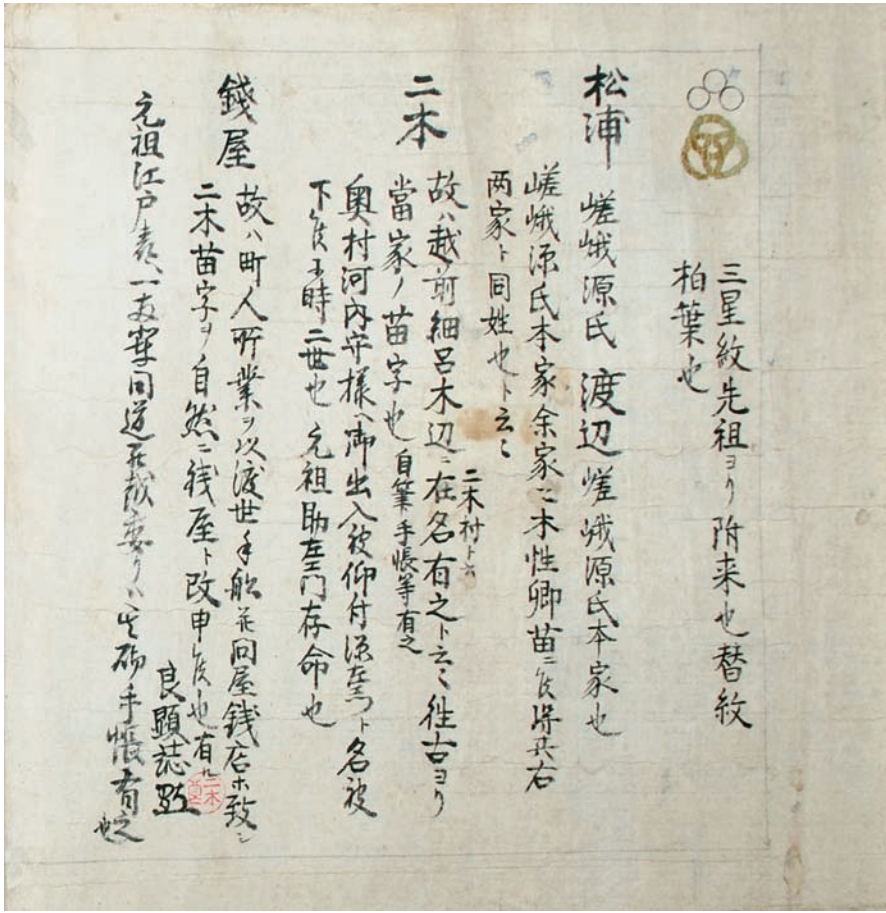 三星紋先祖ヨリ附来也替紋
柏葉也
松浦 嵯峨源氏 渡辺 嵯峨源氏本家也
嵯峨源氏本家余家ニ木性郷苗ニ候得共右
両家ト同姓也ト云々
二木 故ハ越前細呂木辺ニ在名有之ト云々往古ヨリ
二木村ト云
當家ノ苗字也 自筆手帳等有之
奥村河内守様ヘ御出入被仰付 名被
下候 時二世也 元祖助左エ門存命也
錢屋 故ハ町人所業ヲ以渡世手船 問屋銭店 致シ
二木苗字ヲ自然ニ銭屋ト改申候也有
良顕誌
元祖江戸表 同道 手帳有之
也
二木